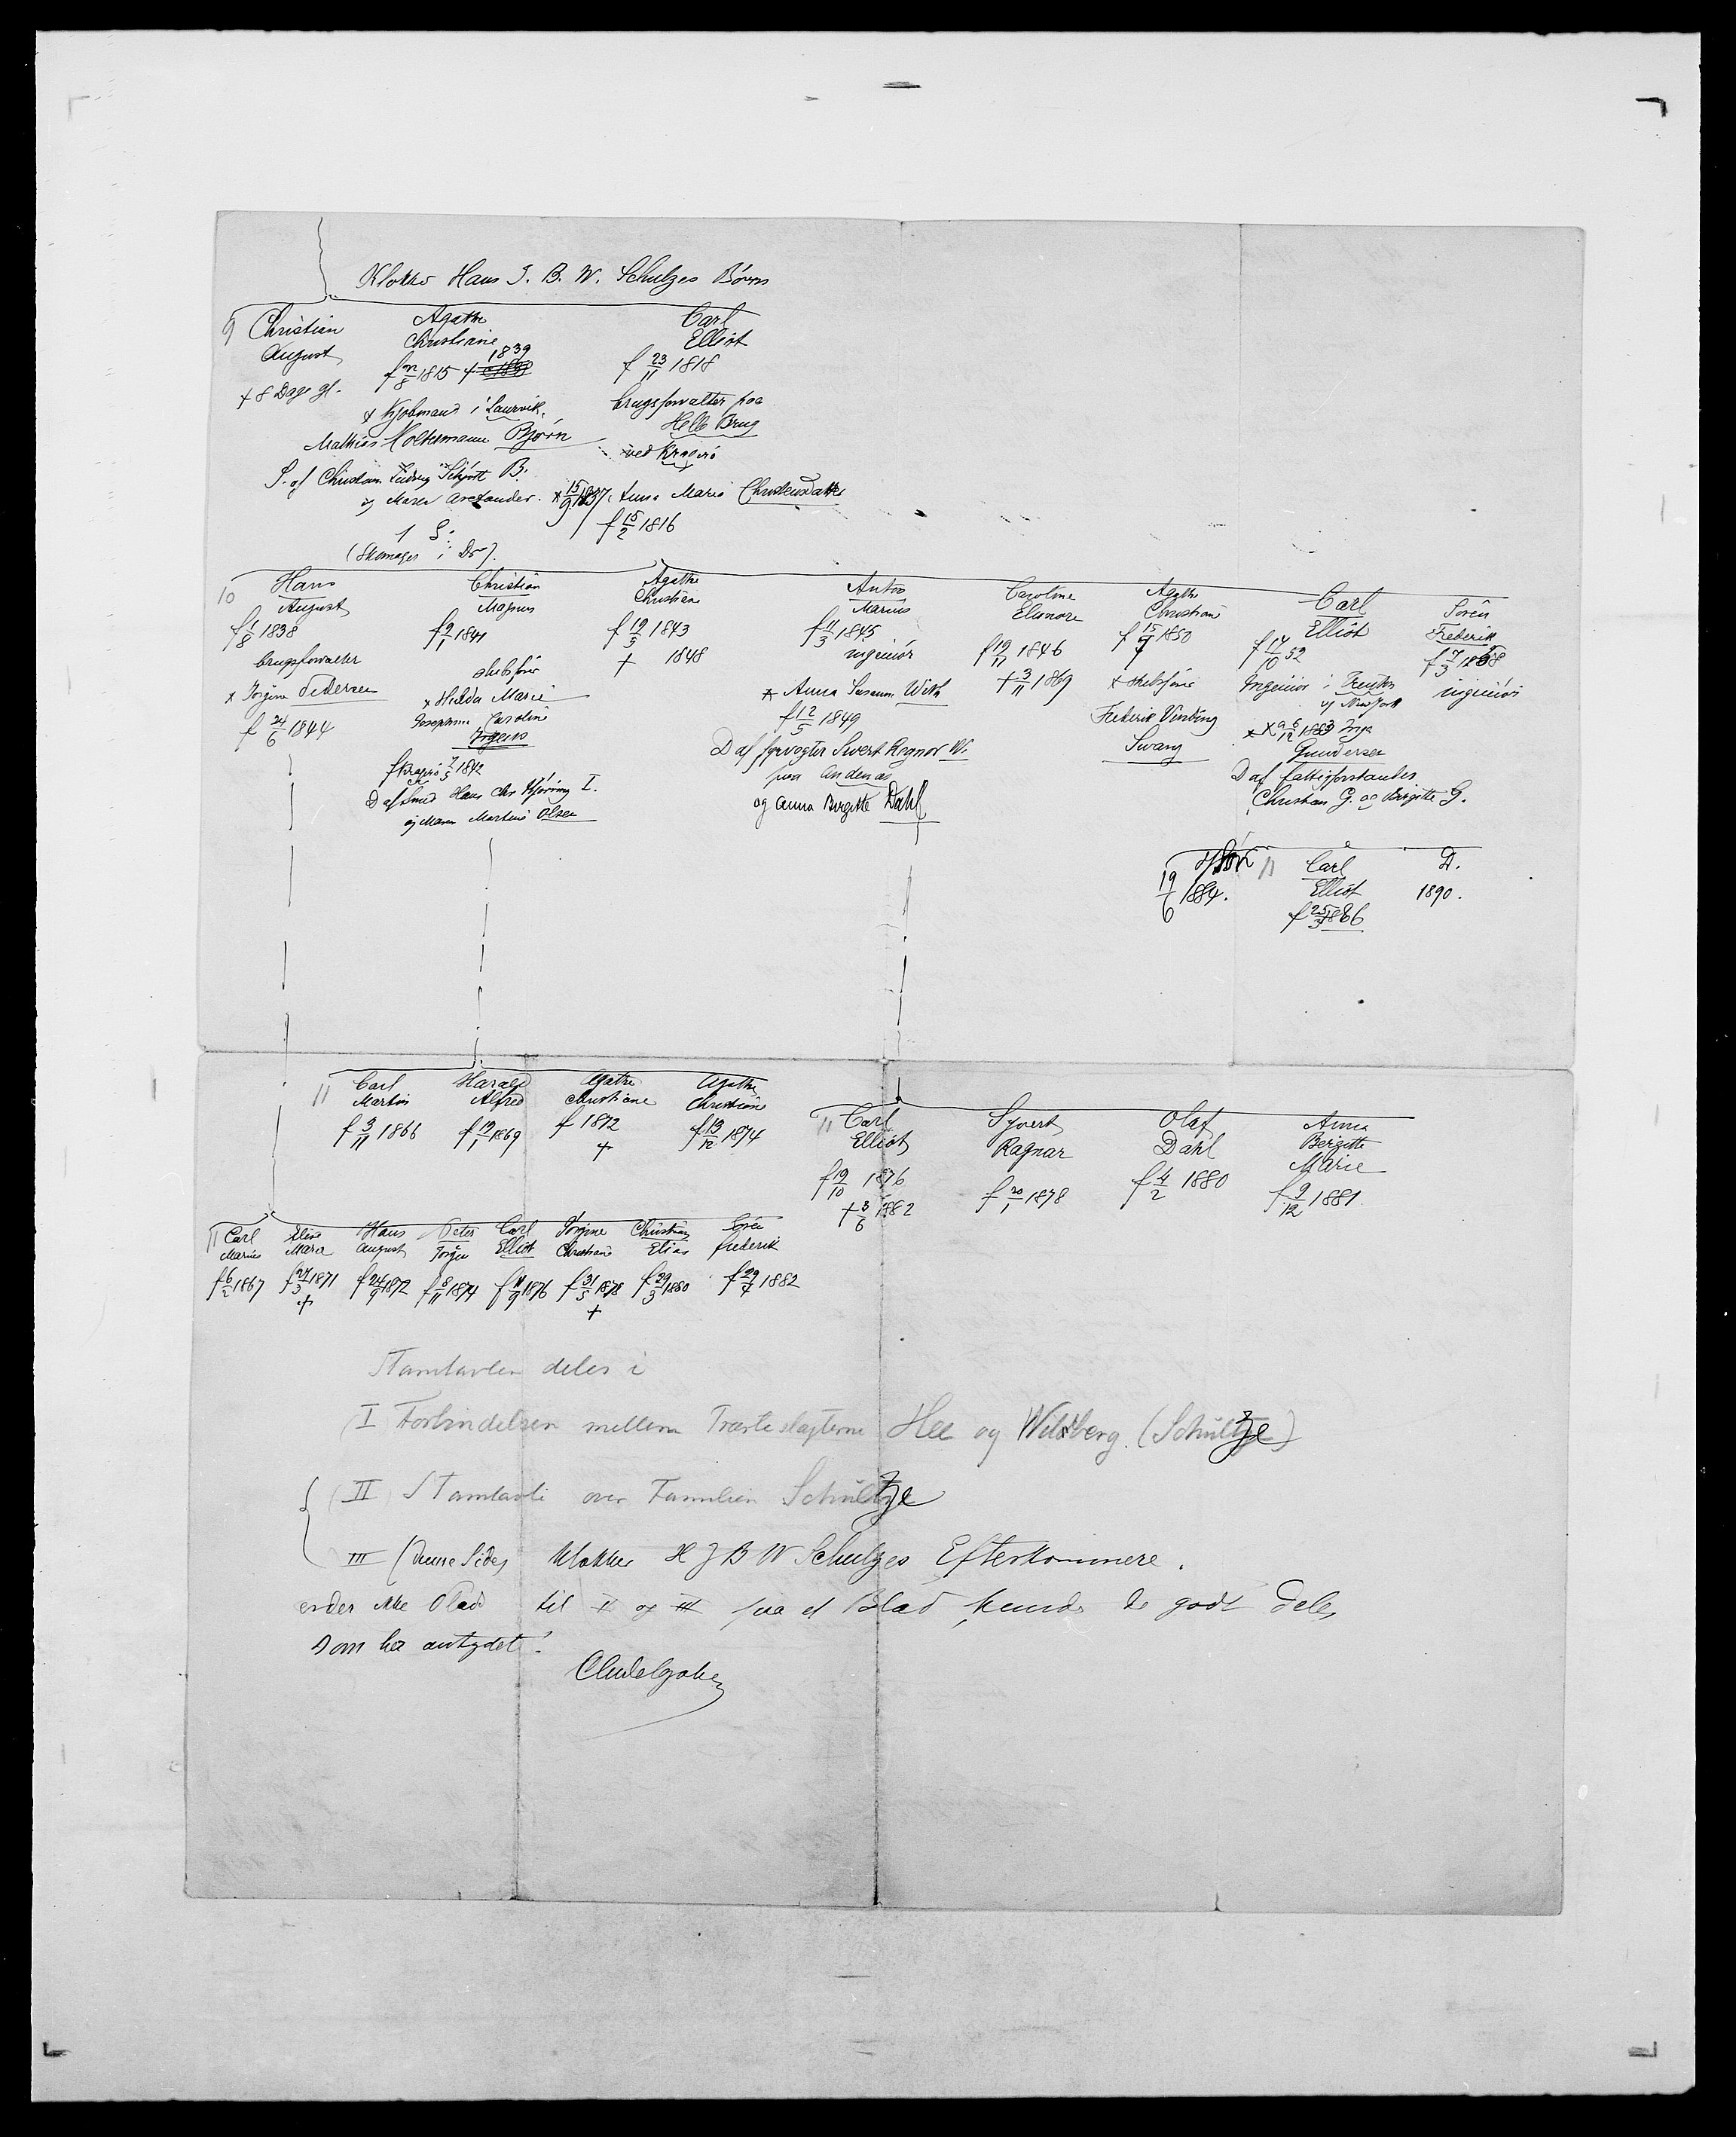 Klokker Hans J. B. W. Schulzes Børn
9 Christian
August
+ 8 Dage gl.
Agathe
Christiane
1839
f 22/8 1815 +
x Kjøbmand i Laurvik,
Mathias Bjørn
S. af Christian Ludvig B.
og Maren
1 S.
(Skomager i Dr.)
Carl
Elliot
f 23/11 1818
brugsforvalter paa
Helle Brug
ved Kragerø
x 15/9 1837 Anna Maria Christensdatter
f 15/2 1816
10 Hans
August
f 1/8 1838
brugsforvalter
x Jørgine Pedersen
f 24/6 1844
Christian
Magnus
f 9/1 1841
skibsfører
x Hilda Marie
Josephine Caroline
f Kragerø 7/5 1842
D af Smed Hans Chr I.
og Maren Martine Olsen
Agathe
Christiane
f 19/3 1843
+ 1848
Anton
Marius
f 11/3 1845
ingeniør
x Anna Susanne With
f 12/5 1849
D af fyrvogter Sivert Regnor W.
paa Andenæs
og Anna Birgitte Dahl
Caroline
Elenore
f 19/11 1846
+ 3/11 1869
Agathe
Christiane
f 15/7 1850
x skibsfører
Frederik Vinding
Swang
Carl
Elliot
f 17/10 52
Ingeniør i Trenton
New York
1883 Inga
Gundersen
D af fattigforstander
Christian G. og Birgitte G.
Sørên
Frederik
f 7/3 1858
ingeniør
19/6 1884.
11 Carl
Elliot
f 25/3 1886
D.
1890.
11 Carl
Martin
f 3/11 1866
Harald
Alfred
f 19/1 1869
Agathe
Christiane
f 1872
+
Agathe
Christiane
f 19/12 1874
11 Carl
Elliot
f 19/10 1876
+ 3/6 1882
Syvert
Ragnar
f 20/1 1878
Olaf
Dahl
f 4/2 1880
Anna
Bergitte
Marie
f 9/12 1881.
11 Carl
Marius
f 6/2 1867
Eline
Maria
f 27/3 1871
+
Hans
August
f 24/9 1872
Peter
Jørgen
f 8/11 1874
Carl
Elliot
f 11/9 1876
Jørgine
Christiane
f 31/5 1878
+
Christian
Elias
f 29/3 1880
Sørên
Frederik
f 29/4 1882
Stamtavlen deles i
I Forbindelsen mellem Præsteslægterne Hee og Wildberg. (Schultze)
II Stamtavle over Familien Schultze
III (denne Side) Klokker H J B W Schulzes Efterkommere.
er der ikke Plads til II og III paa et Blad kunde de godt deles
som her antydet!